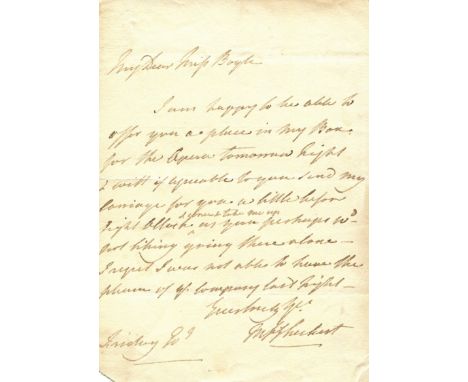 My Dear Miss Boyle
I am happy to be able to
offer you a place in my Box
for the Opera tomorrow Night
& will if agreeable to you send my
Carriage for you a little before
Eight OClock & come & take me up as you perhaps wd
not liking going there alone —
I regret I was not able to have the
pleasure of yr Company last Night —
Yrs
Friday